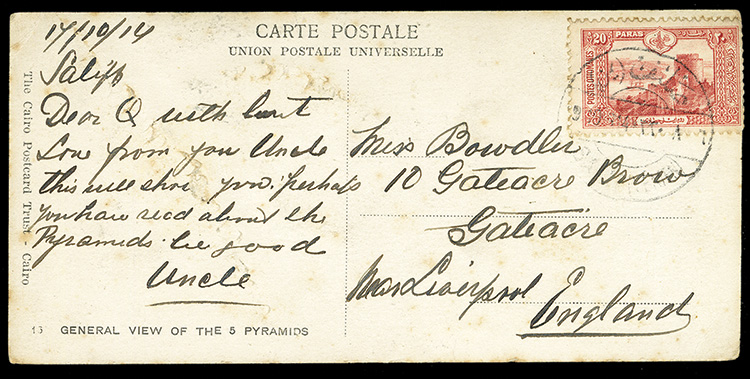 CARTE POSTALE
UNION POSTALE UNIVERSELLE
17/10/14
Salif
Dear Q with best
Love from you Uncle
this will show you. perhaps
you have read about the
Pyramids. be good
Uncle
13 GENERAL VIEW OF THE 5 PYRAMIDS
The Cairo Postcard Trust - Cairo
Miss Bowdler
10 Gateacre Brow
Gateacre
Near Liverpool
England
20 PARAS ٢٠
POSTES OTTOMANES